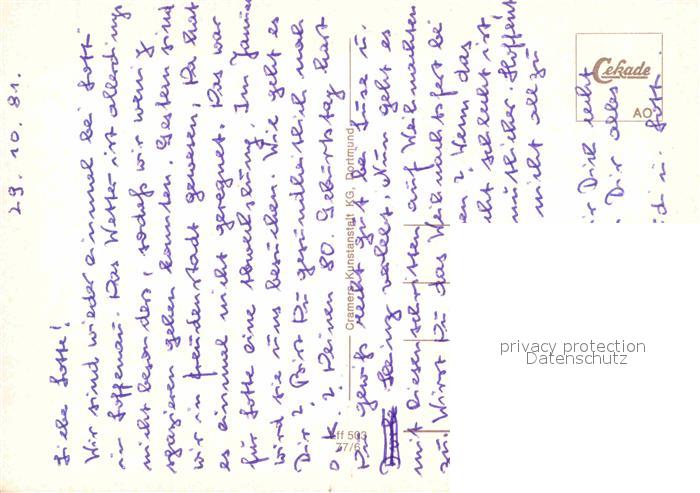 29.10.81.
Liebe Lotte!
Wir sind wieder einmal bei Lotte
in Loffenau. Das Wetter ist allerdings
nicht besonders, sodaß wir wenig
spazieren gehen konnten. Gestern sind
wir in Freudenstadt gewesen, da hat
es einmal nicht geregnet. Das war
für Lotte eine Abwechslung. Im Januar
wird sie uns besuchen. Wie geht es
Dir? Bist Du gesundheitlich noch
o.K.? Deinen 80. Geburtstag hast
Du gewiß recht gut bei Luise u.
Heinz verlebt. Nun geht es
mit Riesenschritten auf Weihnachten
zu. Wirst Du das Weihnachtsfest bei
en? Wenn das
cht schlecht ist
mütlicher. Hoffent
nicht allzu
ir Dich recht
Dir alles
Lott.
Cramers Kunstanstalt KG, Dortmund
ff 503
77/6
Cekade
AO
privacy protection
Datenschutz